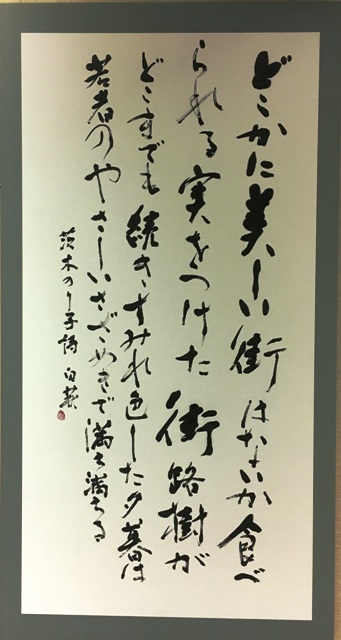 どこかに美しい街はないか食べ
られる実をつけた街路樹が
どこまでも続きすみれ色した夕暮は
若者のやさしいさざめきで満ち満ちる
茨木のり子詩 白萩